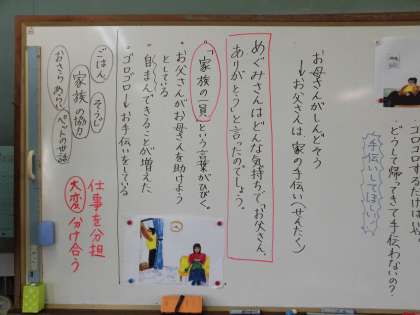 ゴロゴロするだけはいや
どうして帰ってきて手伝わないの?
手伝いしてほしい
お母さんがしんどそう
→お父さんは家の手伝い(せんたく)
めぐみさんはどんな気持ちで「お父さん、
ありがとう」と言ったのでしょう。
・「家族の一員」という言葉がひびく。
・お父さんがお母さんを助けよう
としている
・自まんできることが増えた
・ゴロゴロ→お手伝いをしている
ごはん
そうじ
家族の協力
おさらあらい
ペットの世話
仕事を分担
大変 分け合う